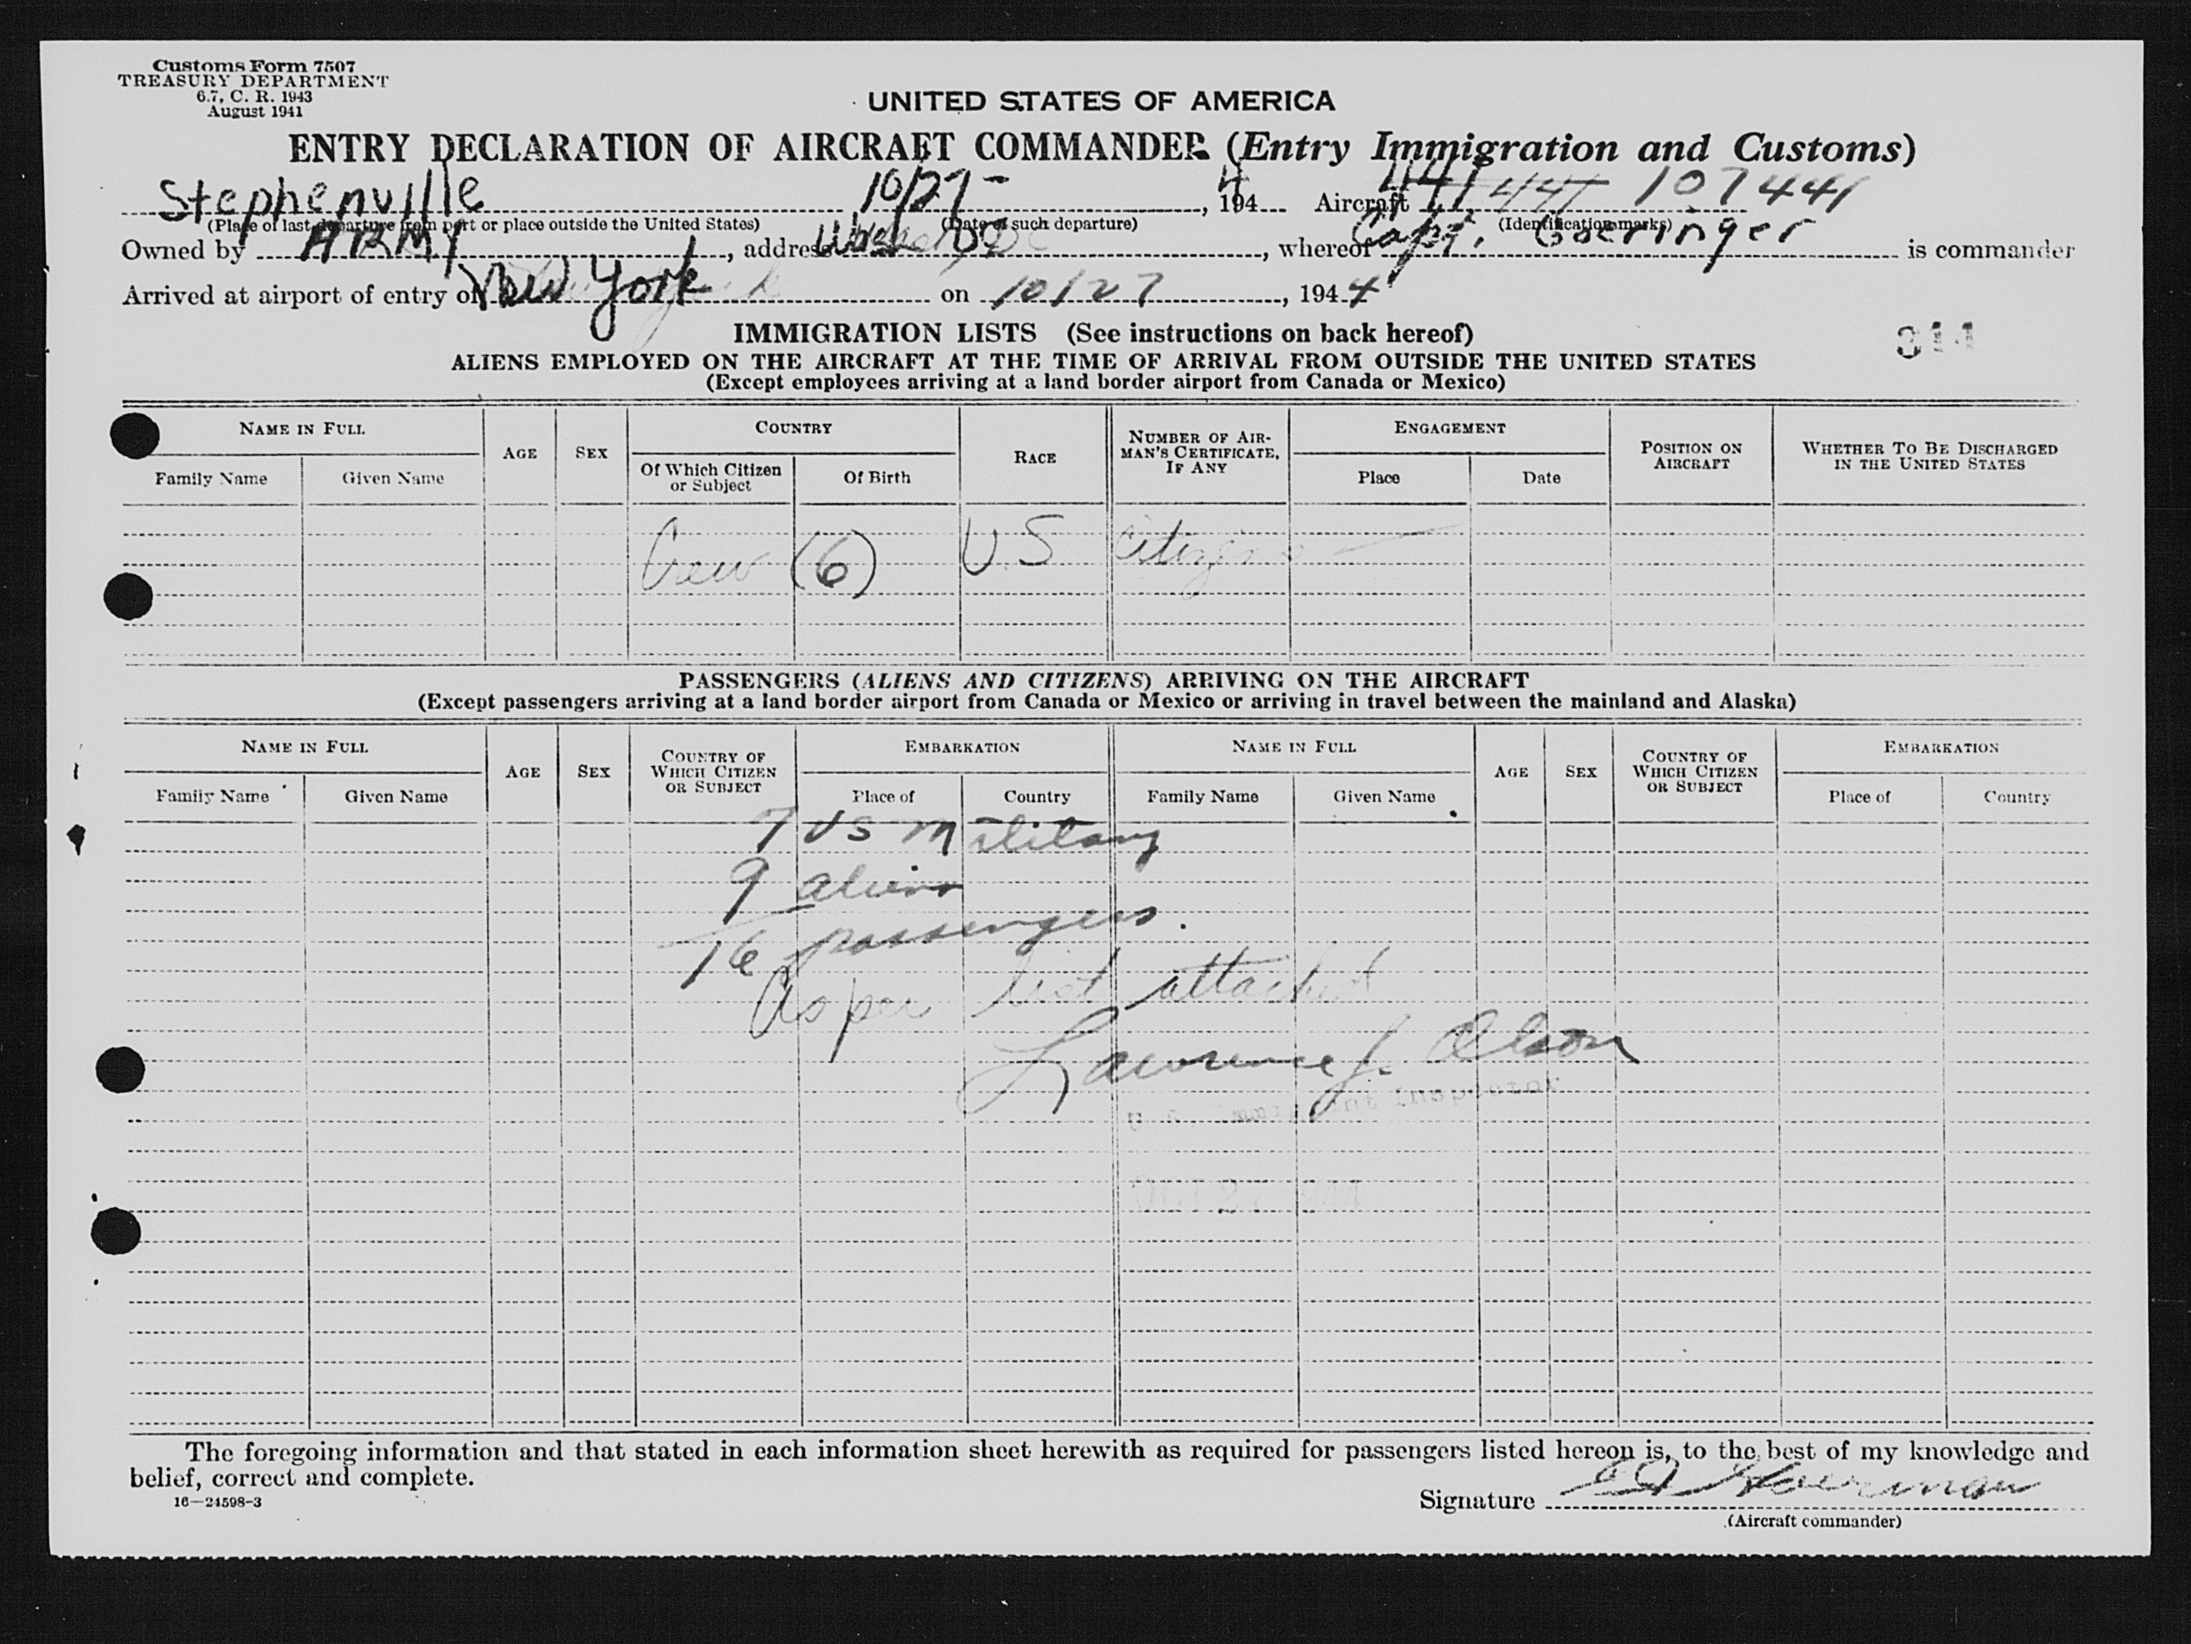 Customs Form 7507
TREASURY DEPARTMENT
6.7, C. R. 1943
August 1941
UNITED STATES OF AMERICA
ENTRY DECLARATION OF AIRCRAFT COMMANDER (Entry Immigration and Customs)
Stephenville 10/27- , 194 4 Aircraft 441 441 107441
(Place of last departure from port or place outside the United States) (Date of such departure) (Identification marks)
Owned by ARMY, address Wash DC, whereof Capt. Goeringer is commander
Arrived at airport of entry of New York on 10/27, 194 4
IMMIGRATION LISTS (See instructions on back hereof)
314
ALIENS EMPLOYED ON THE AIRCRAFT AT THE TIME OF ARRIVAL FROM OUTSIDE THE UNITED STATES
(Except employees arriving at a land border airport from Canada or Mexico)
NAME IN FULL AGE SEX COUNTRY RACE NUMBER OF AIRMAN'S CERTIFICATE, IF ANY ENGAGEMENT POSITION ON AIRCRAFT WHETHER TO BE DISCHARGED IN THE UNITED STATES
Family Name Given Name Of Which Citizen or Subject Of Birth Place Date
Crew (6) U.S Citizens
PASSENGERS (ALIENS AND CITIZENS) ARRIVING ON THE AIRCRAFT
(Except passengers arriving at a land border airport from Canada or Mexico or arriving in travel between the mainland and Alaska)
NAME IN FULL AGE SEX COUNTRY OF WHICH CITIZEN OR SUBJECT EMBARKATION NAME IN FULL AGE SEX COUNTRY OF WHICH CITIZEN OR SUBJECT EMBARKATION
Family Name Given Name Place of Country Family Name Given Name Place of Country
7 US Military
9 aliens
16 passengers.
As per list attached
Lawrence J. Olson
Inspector
OCT 27
The foregoing information and that stated in each information sheet herewith as required for passengers listed hereon is, to the best of my knowledge and
belief, correct and complete.
16—24598-3
Signature
(Aircraft commander)